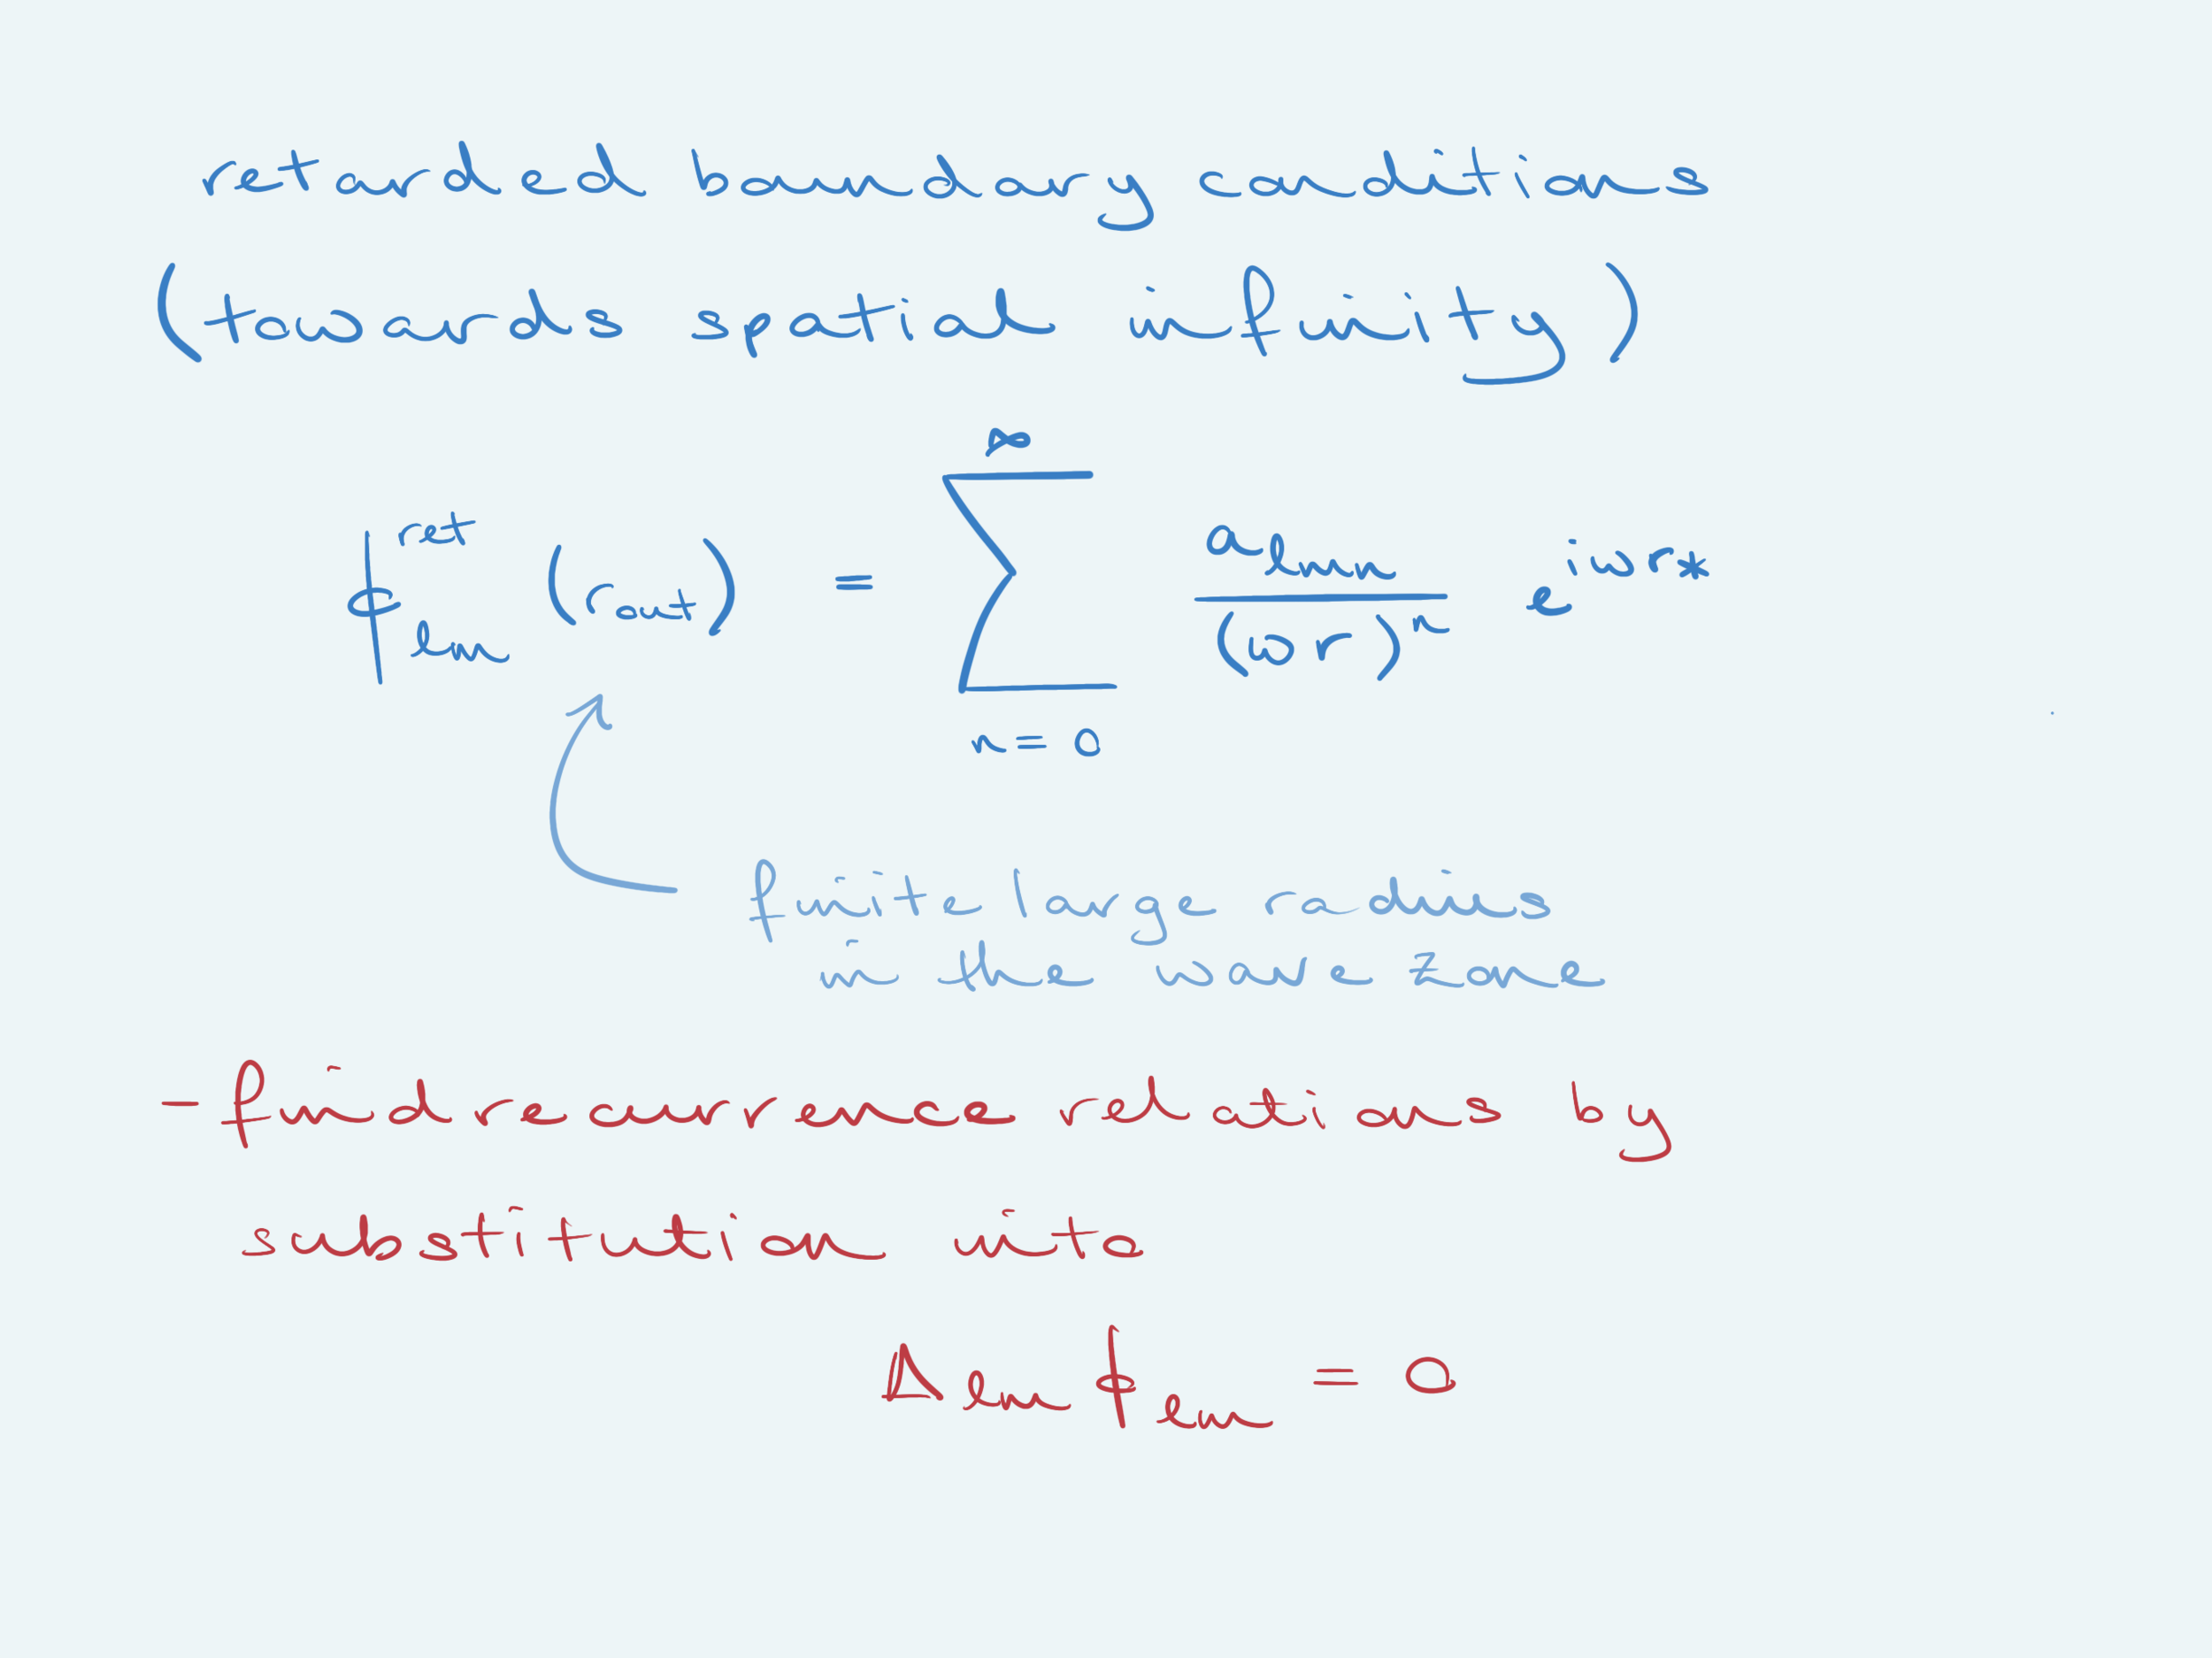 retarded boundary conditions
(towards spatial infinity)
ϕ^{ret}_{lm} (r_{out}) = \sum_{n=0}^{∞} \frac{a_{lmn}}{(ωr)^n} e^{iωr_*}
finite large radius
in the wave zone
- find recurrence relations by
substitution into
Δ_{lm} ϕ_{lm} = 0